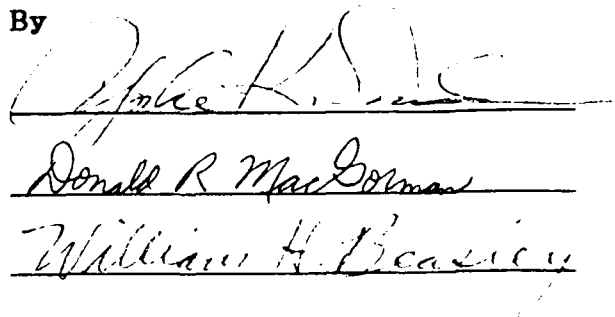 By
K.
Donald R MacGorman
William H. Beasley